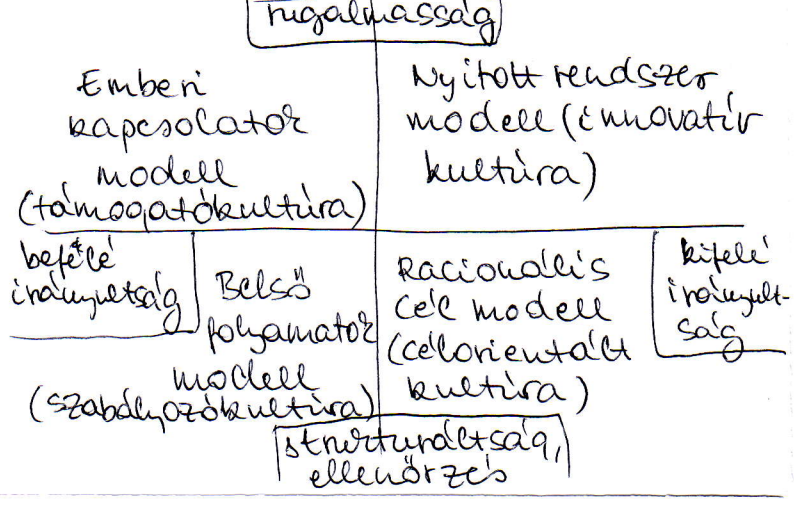 rugalmasság
Emberi
kapcsolatok
modell
(támogatókultúra)
Nyitott rendszer
modell (innovatív
kultúra)
befelé
irányultság
Belső
folyamatok
modell
(szabályozókultúra)
Racionális
cél modell
(célorientált
kultúra)
kifelé
irányult-
ság
strukturáltság,
ellenőrzés